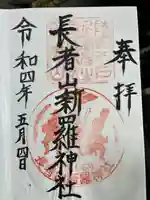 奉拝
長者山新羅神社
令和四年五月四日